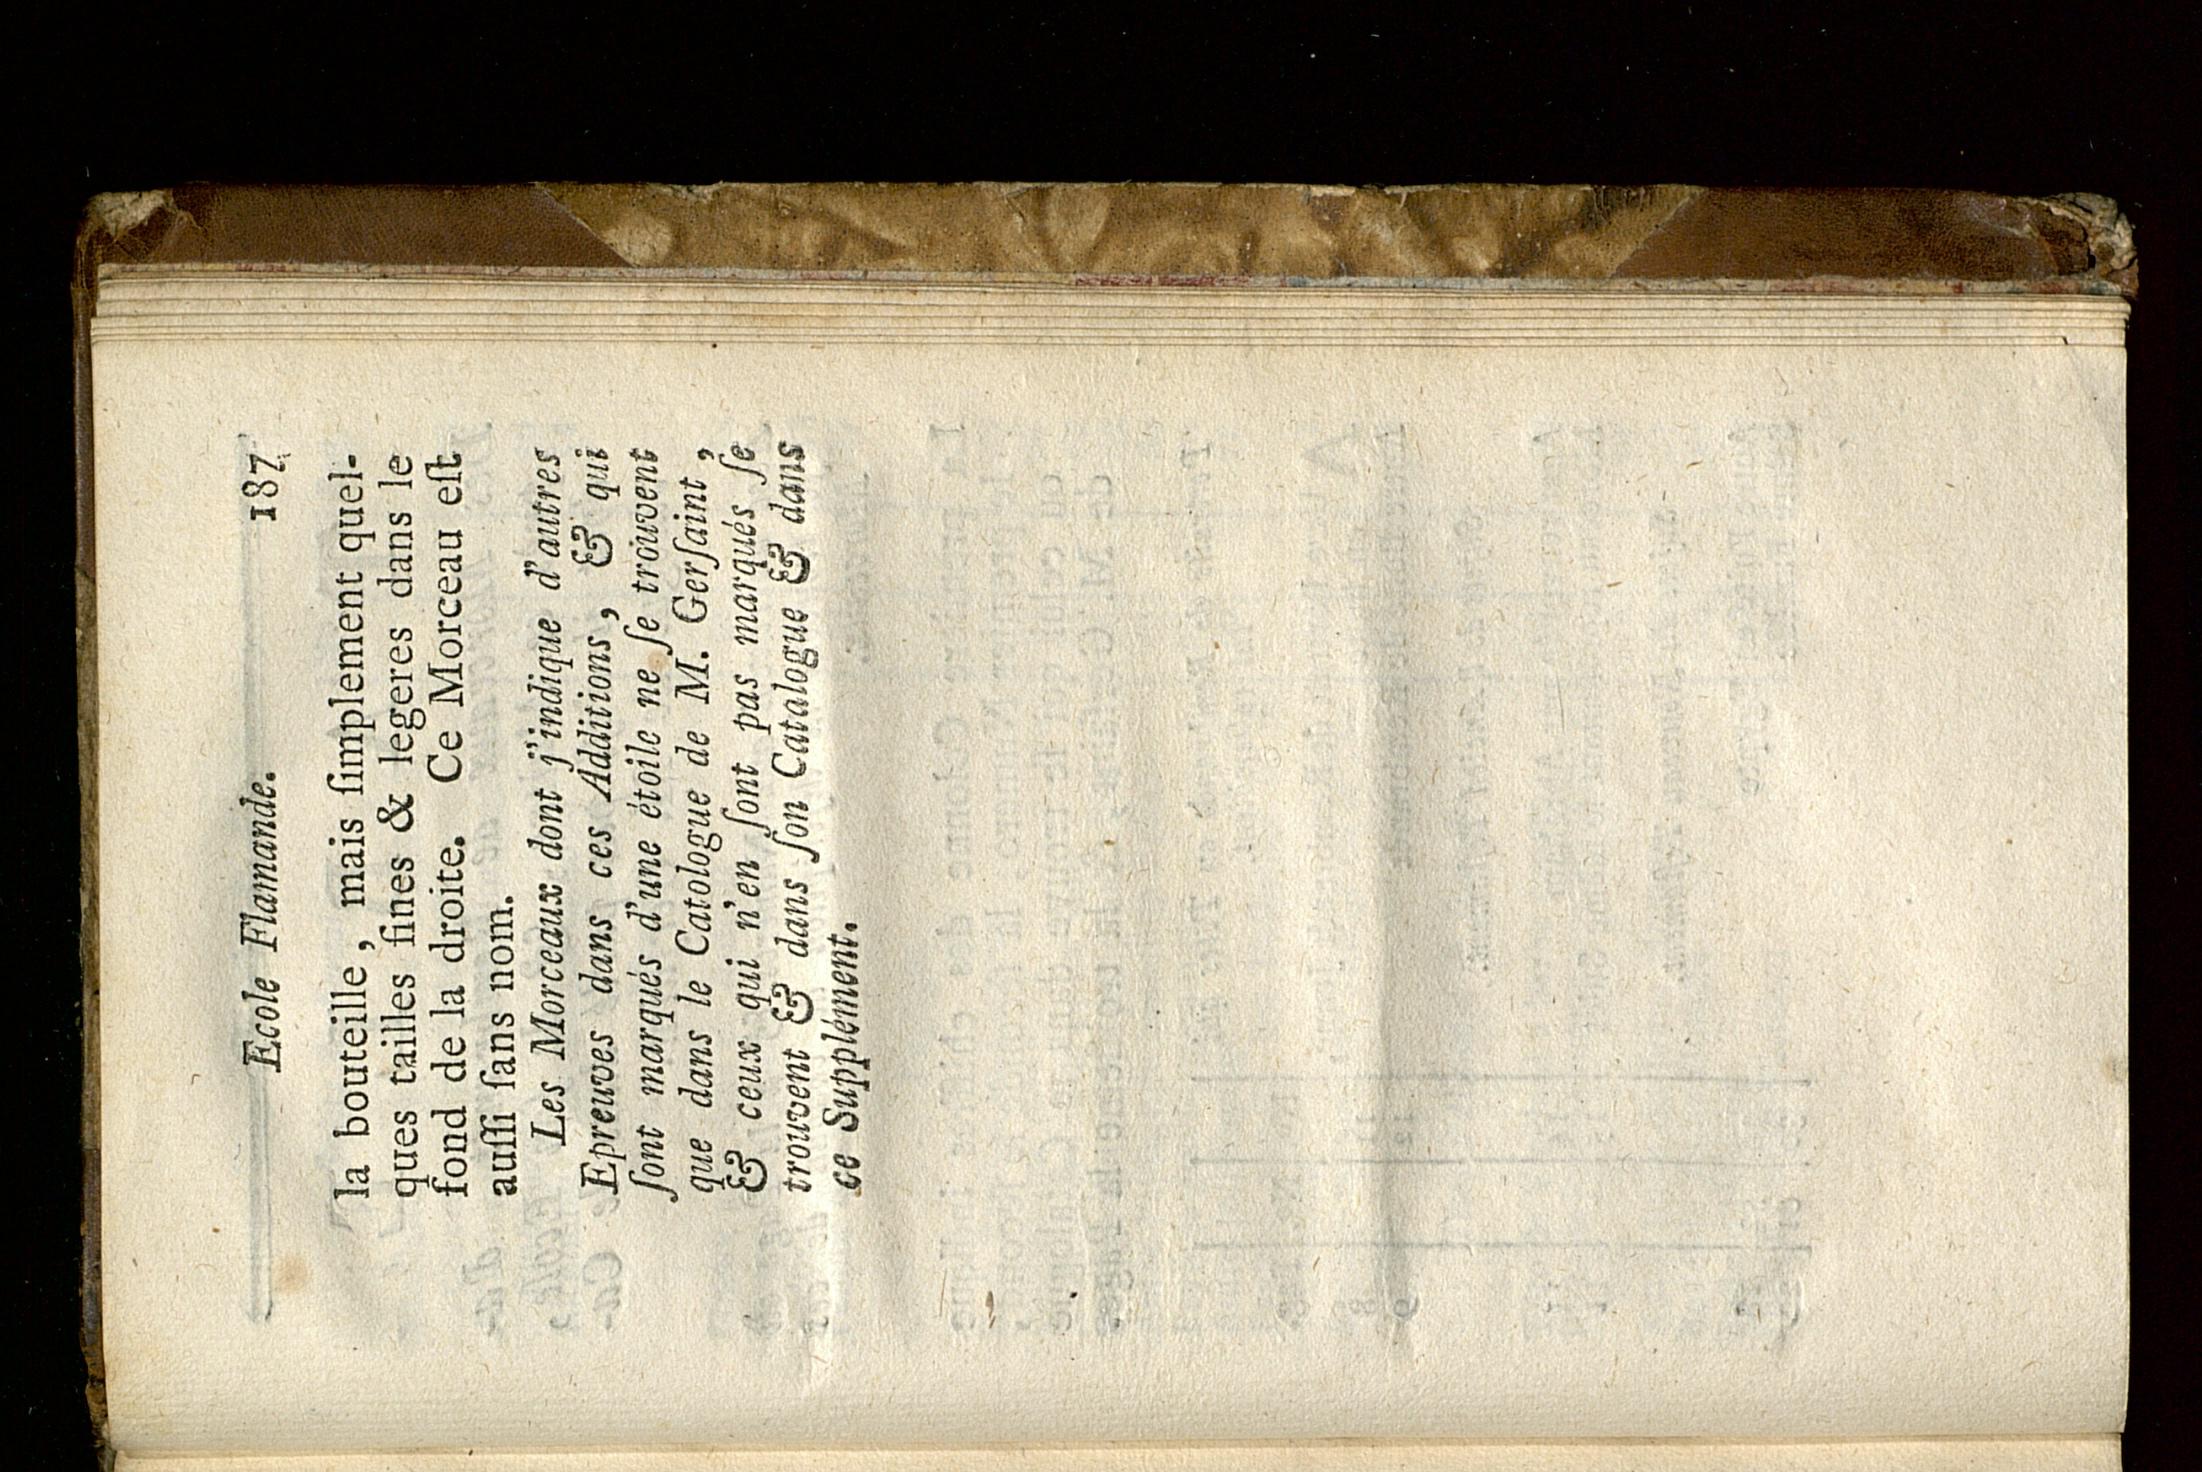 Ecole Flamande. 187
la bouteille, mais ſimplement quel-
ques tailles fines & legeres dans le
fond de la droite. Ce Morceau eſt
auſſi ſans nom.
Les Morceaux dont j'indique d'autres
Epreuves dans ces Additions, & qui
ſont marqués d'une étoile ne ſe trouvent
que dans le Catologue de M. Gerſaint,
& ceux qui n'en ſont pas marqués ſe
trouvent & dans ſon Catalogue & dans
ce Supplément.